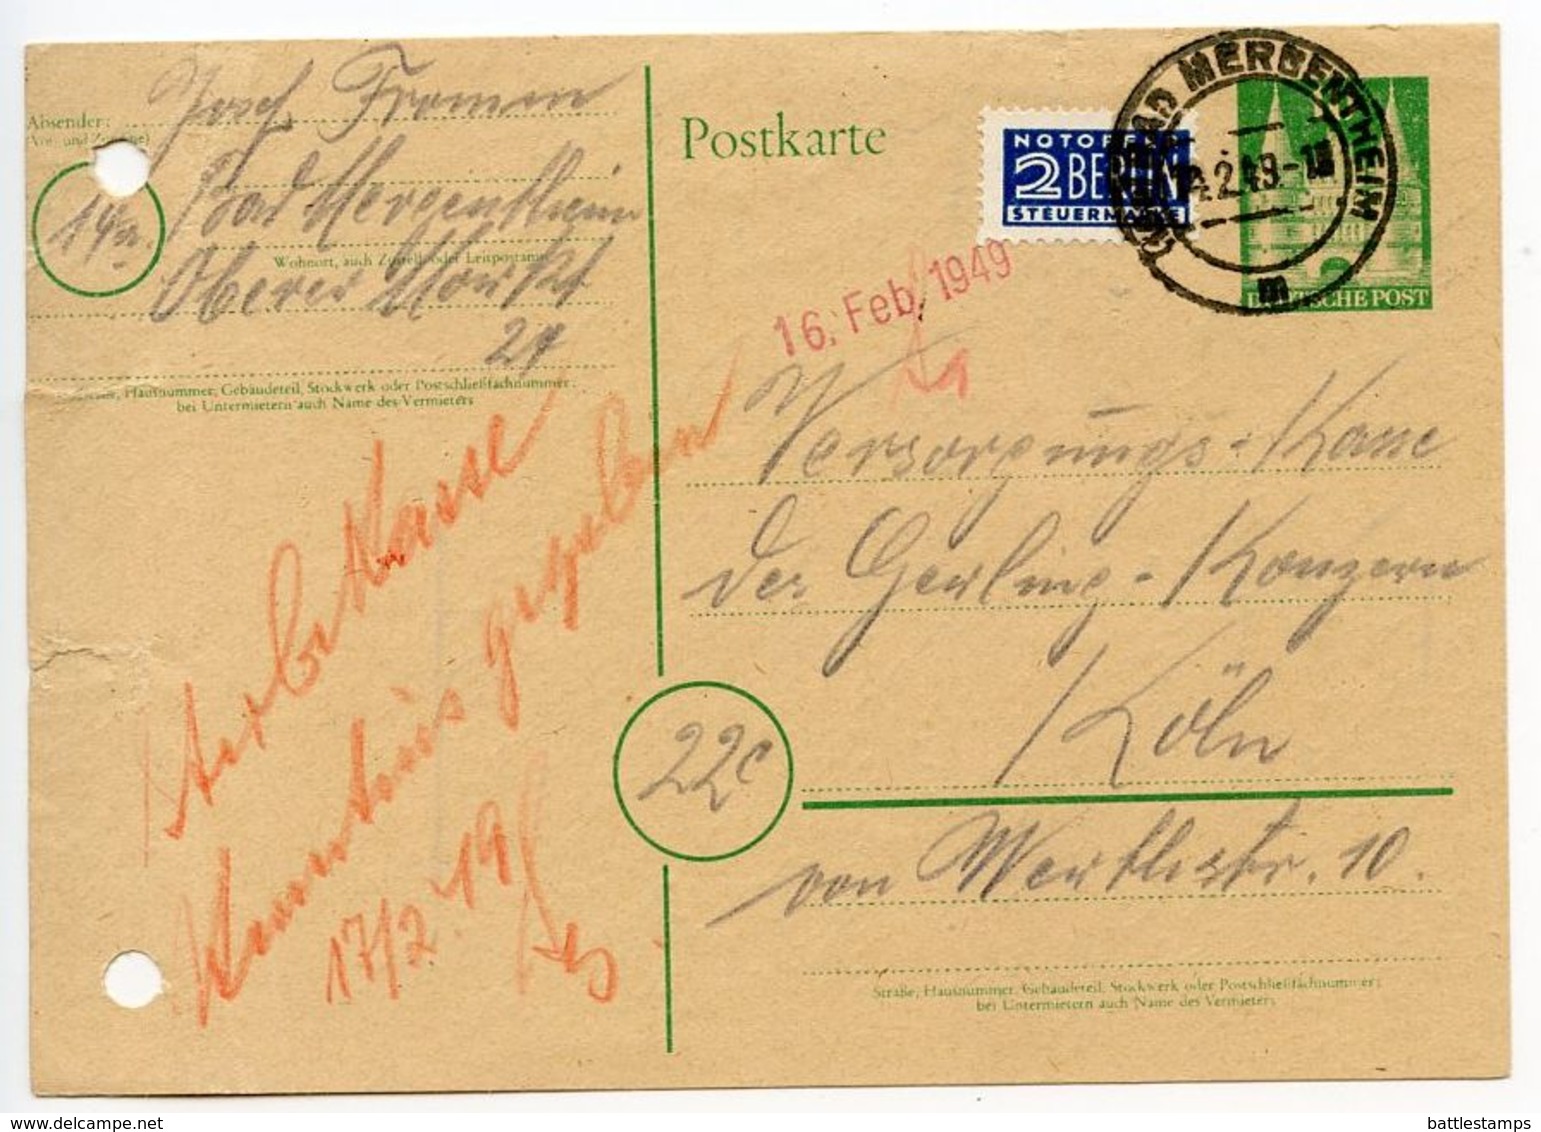 Absender:
Josef Fromm
Bad Mergentheim
14a
Wohnort, auch Zustell- oder Leitpostamt
Oberer Markt
29
Straße, Hausnummer, Gebäudeteil, Stockwerk oder Postschließfachnummer;
bei Untermietern auch Name des Vermieters
Postkarte
NOTOPFER
2 BERLIN
STEUERMARKE
BAD MERGENTHEIM
2.49-18
m
DEUTSCHE POST
16. Feb. 1949
Versorgungs-Kasse
der Gerling-Konzern
Köln
22c
von Werthstr. 10.
Straße, Hausnummer, Gebäudeteil, Stockwerk oder Postschließfachnummer;
bei Untermietern auch Name des Vermieters
Sterbekasse
Kenntnis gegeben
17/2. 49
HipPostcard.com
battlestamps